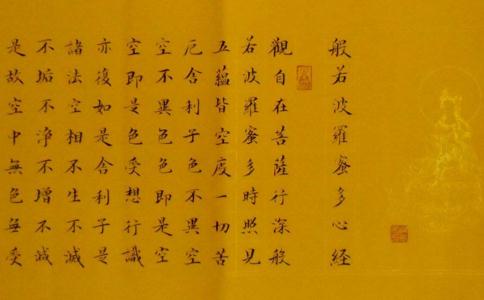 般若波羅蜜多心経
觀自在菩薩行深般
若波羅蜜多時照見
五蘊皆空度一切苦
厄舍利子色不異空
空不異色色即是空
空即是色受想行識
亦復如是舍利子是
諸法空相不生不滅
不垢不淨不增不減
是故空中無色無受